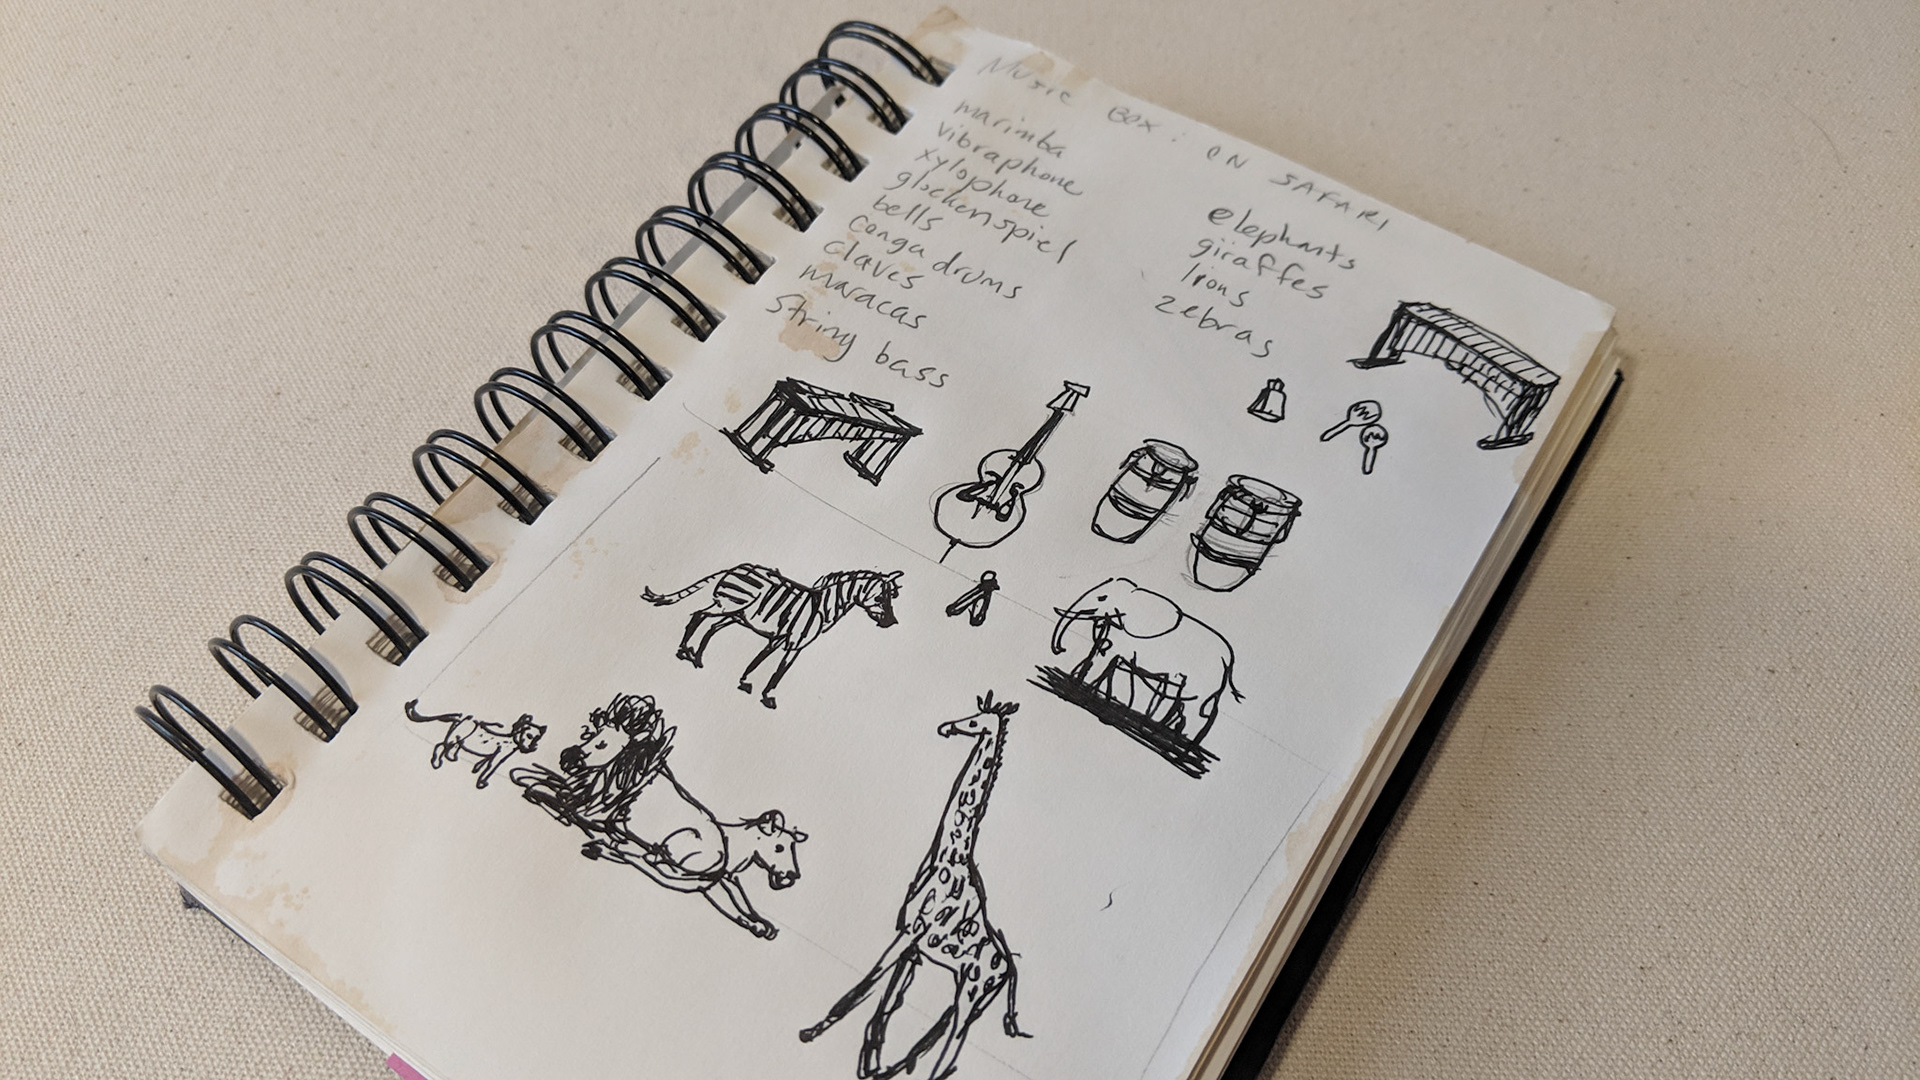 Music Box: ON SAFARI
marimba
vibraphone
xylophone
glockenspiel
bells
conga drums
claves
maracas
String bass
elephants
giraffes
lions
zebras